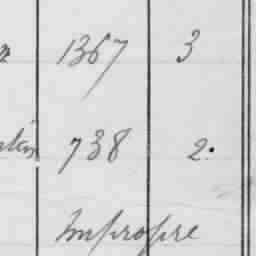 1367 3
738 2.
Impropre